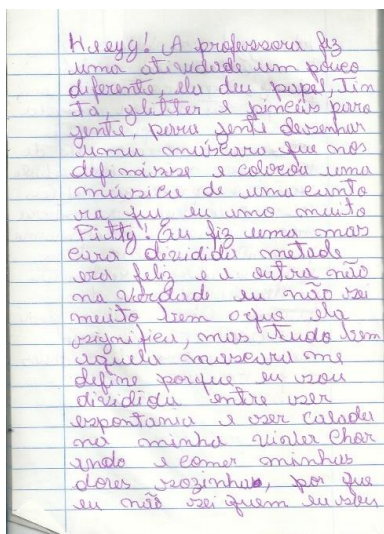 Heeyy! A professora fiz
uma atividade um pouco
diferente, ela deu papel, tin
ta, glitter e pincéis para
gente, para gente desenhar
uma máscara que nos
definisse e colocou uma
música de uma canto
ra que eu amo muito
Pitty! Eu fiz uma mas
cara dividida metade
era feliz e a outra não
na verdade eu não sei
muito bem o que ela
significa, mas tudo bem
aquela mascara me
define porque eu sou
dividida entre ser
espontania e ser calada
na minha viver chor
ando e comer minhas
dores sozinha, por que
eu não sei quem eu sou